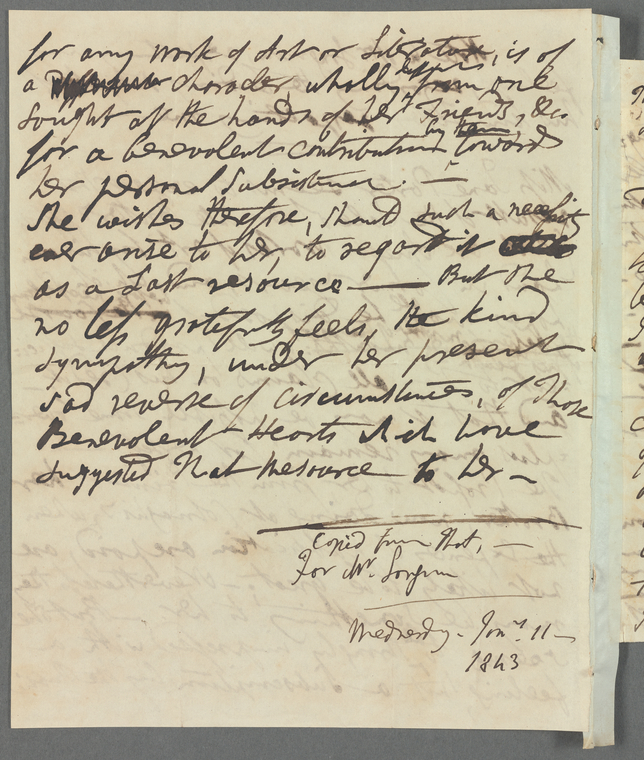 for any work of Art or Literature, is of
a character, wholly from one
sought at the hands of her Friends, &c.
for a benevolent contribution by them towards
her personal Subsistence. —
She wishes therefore, should such a necessity
ever arise to her, to regard it
as a Last resource — But she
no less gratefully feels, the kind
Sympathy, under her present
sad reverse of circumstances, of those
Benevolent Hearts which have
suggested that resource to her —
copied from that, —
For Mr.
Wednesday - Jany. 11 —
1843